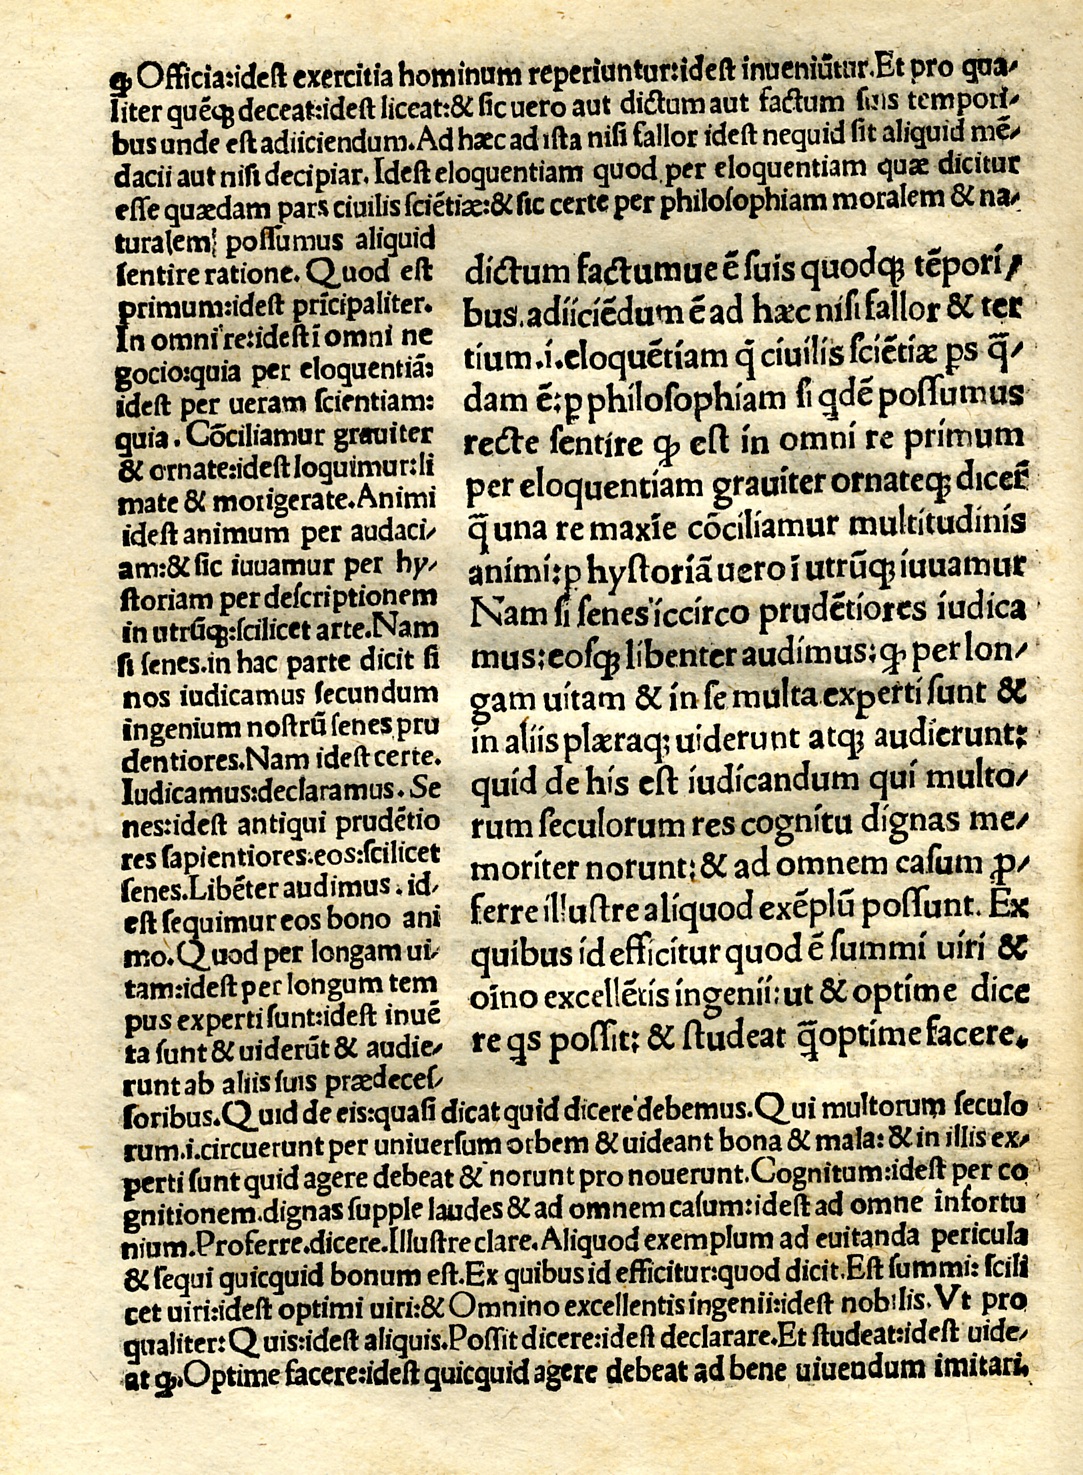 ꝙ Officia:idest exercitia hominum reperiuntur:idest inueniūtur.Et pro qua/
liter quēqꝫ deceat:idest liceat:& sic uero aut dictum aut factum suis tempori/
bus unde est adiiciendum.Ad hæc ad ista nisi fallor idest nequid sit aliquid mē/
dacii aut nisi decipiar. Idest eloquentiam quod per eloquentiam quæ dicitur
esse quædam pars ciuilis sciētiæ:& sic certe per philosophiam moralem & na/
turalem possumus aliquid
sentire ratione. Quod est
primum:idest prīcipaliter.
In omni re:idest ī omni ne
gocio:quia per eloquentiā:
idest per ueram scientiam:
quia. Cōciliamur grauiter
& ornate:idest loquimur:li
mate & morigerate.Animi
idest animum per audaci/
am:& sic iuuamur per hy/
storiam per descriptionem
in utrūqꝫ:scilicet arte.Nam
si senes.in hac parte dicit si
nos iudicamus secundum
ingenium nostrū senes pru
dentiores.Nam idest certe.
Iudicamus:declaramus. Se
nes:idest antiqui prudētio
res sapientiores.eos:scilicet
senes.Libēter audimus. id/
est sequimur eos bono ani
mo.Quod per longam ui/
tam:idest per longum tem
pus experti sunt:idest inuē
ta sunt & uiderūt & audie/
runt ab aliis suis prædeces/
dictum factumue ē suis quodqꝫ tēpori/
bus.adiiciēdum ē ad hæc nisi fallor & ter
tium.i.eloquētiam q̄ ciuilis sciētiæ ꝑs q̄/
dam ē:ꝑ philosophiam si qdē possumus
recte sentire ꝙ est in omni re primum
per eloquentiam grauiter ornateqꝫ dicer̄
q̄ una re maxīe cōciliamur multitudinis
animi:ꝑ hystoriā uero ī utrūqꝫ iuuamur
Nam si senes iccirco prudētiores iudica
mus:eosqꝫ libenter audimus:ꝙ per lon/
gam uitam & in se multa experti sunt &
in aliis plæraqꝫ uiderunt atqꝫ audierunt:
quid de his est iudicandum qui multo/
rum seculorum res cognitu dignas me/
moriter norunt:& ad omnem casum ꝓ/
ferre illustre aliquod exēplū possunt. Ex
quibus id efficitur quod ē summi uiri &
oīno excellētis ingenii:ut & optime dice
re qs possit: & studeat q̄optime facere.
soribus.Quid de eis:quasi dicat quid dicere debemus.Qui multorum seculo
rum.i.circuerunt per uniuersum orbem & uideant bona & mala:& in illis ex/
perti sunt quid agere debeat & norunt pro nouerunt.Cognitum:idest per co
gnitionem.dignas supple laudes & ad omnem casum:idest ad omne infortu
nium.Proferre.dicere.Illustre clare.Aliquod exemplum ad euitanda pericula
& sequi quicquid bonum est.Ex quibus id efficitur:quod dicit.Est summi: scili
cet uiri:idest optimi uiri:& Omnino excellentis ingenii:idest nobilis. Vt pro
qualiter:Quis:idest aliquis.Possit dicere:idest declarare.Et studeat:idest uide/
at ꝙ.Optime facere:idest quicquid agere debeat ad bene uiuendum imitari.